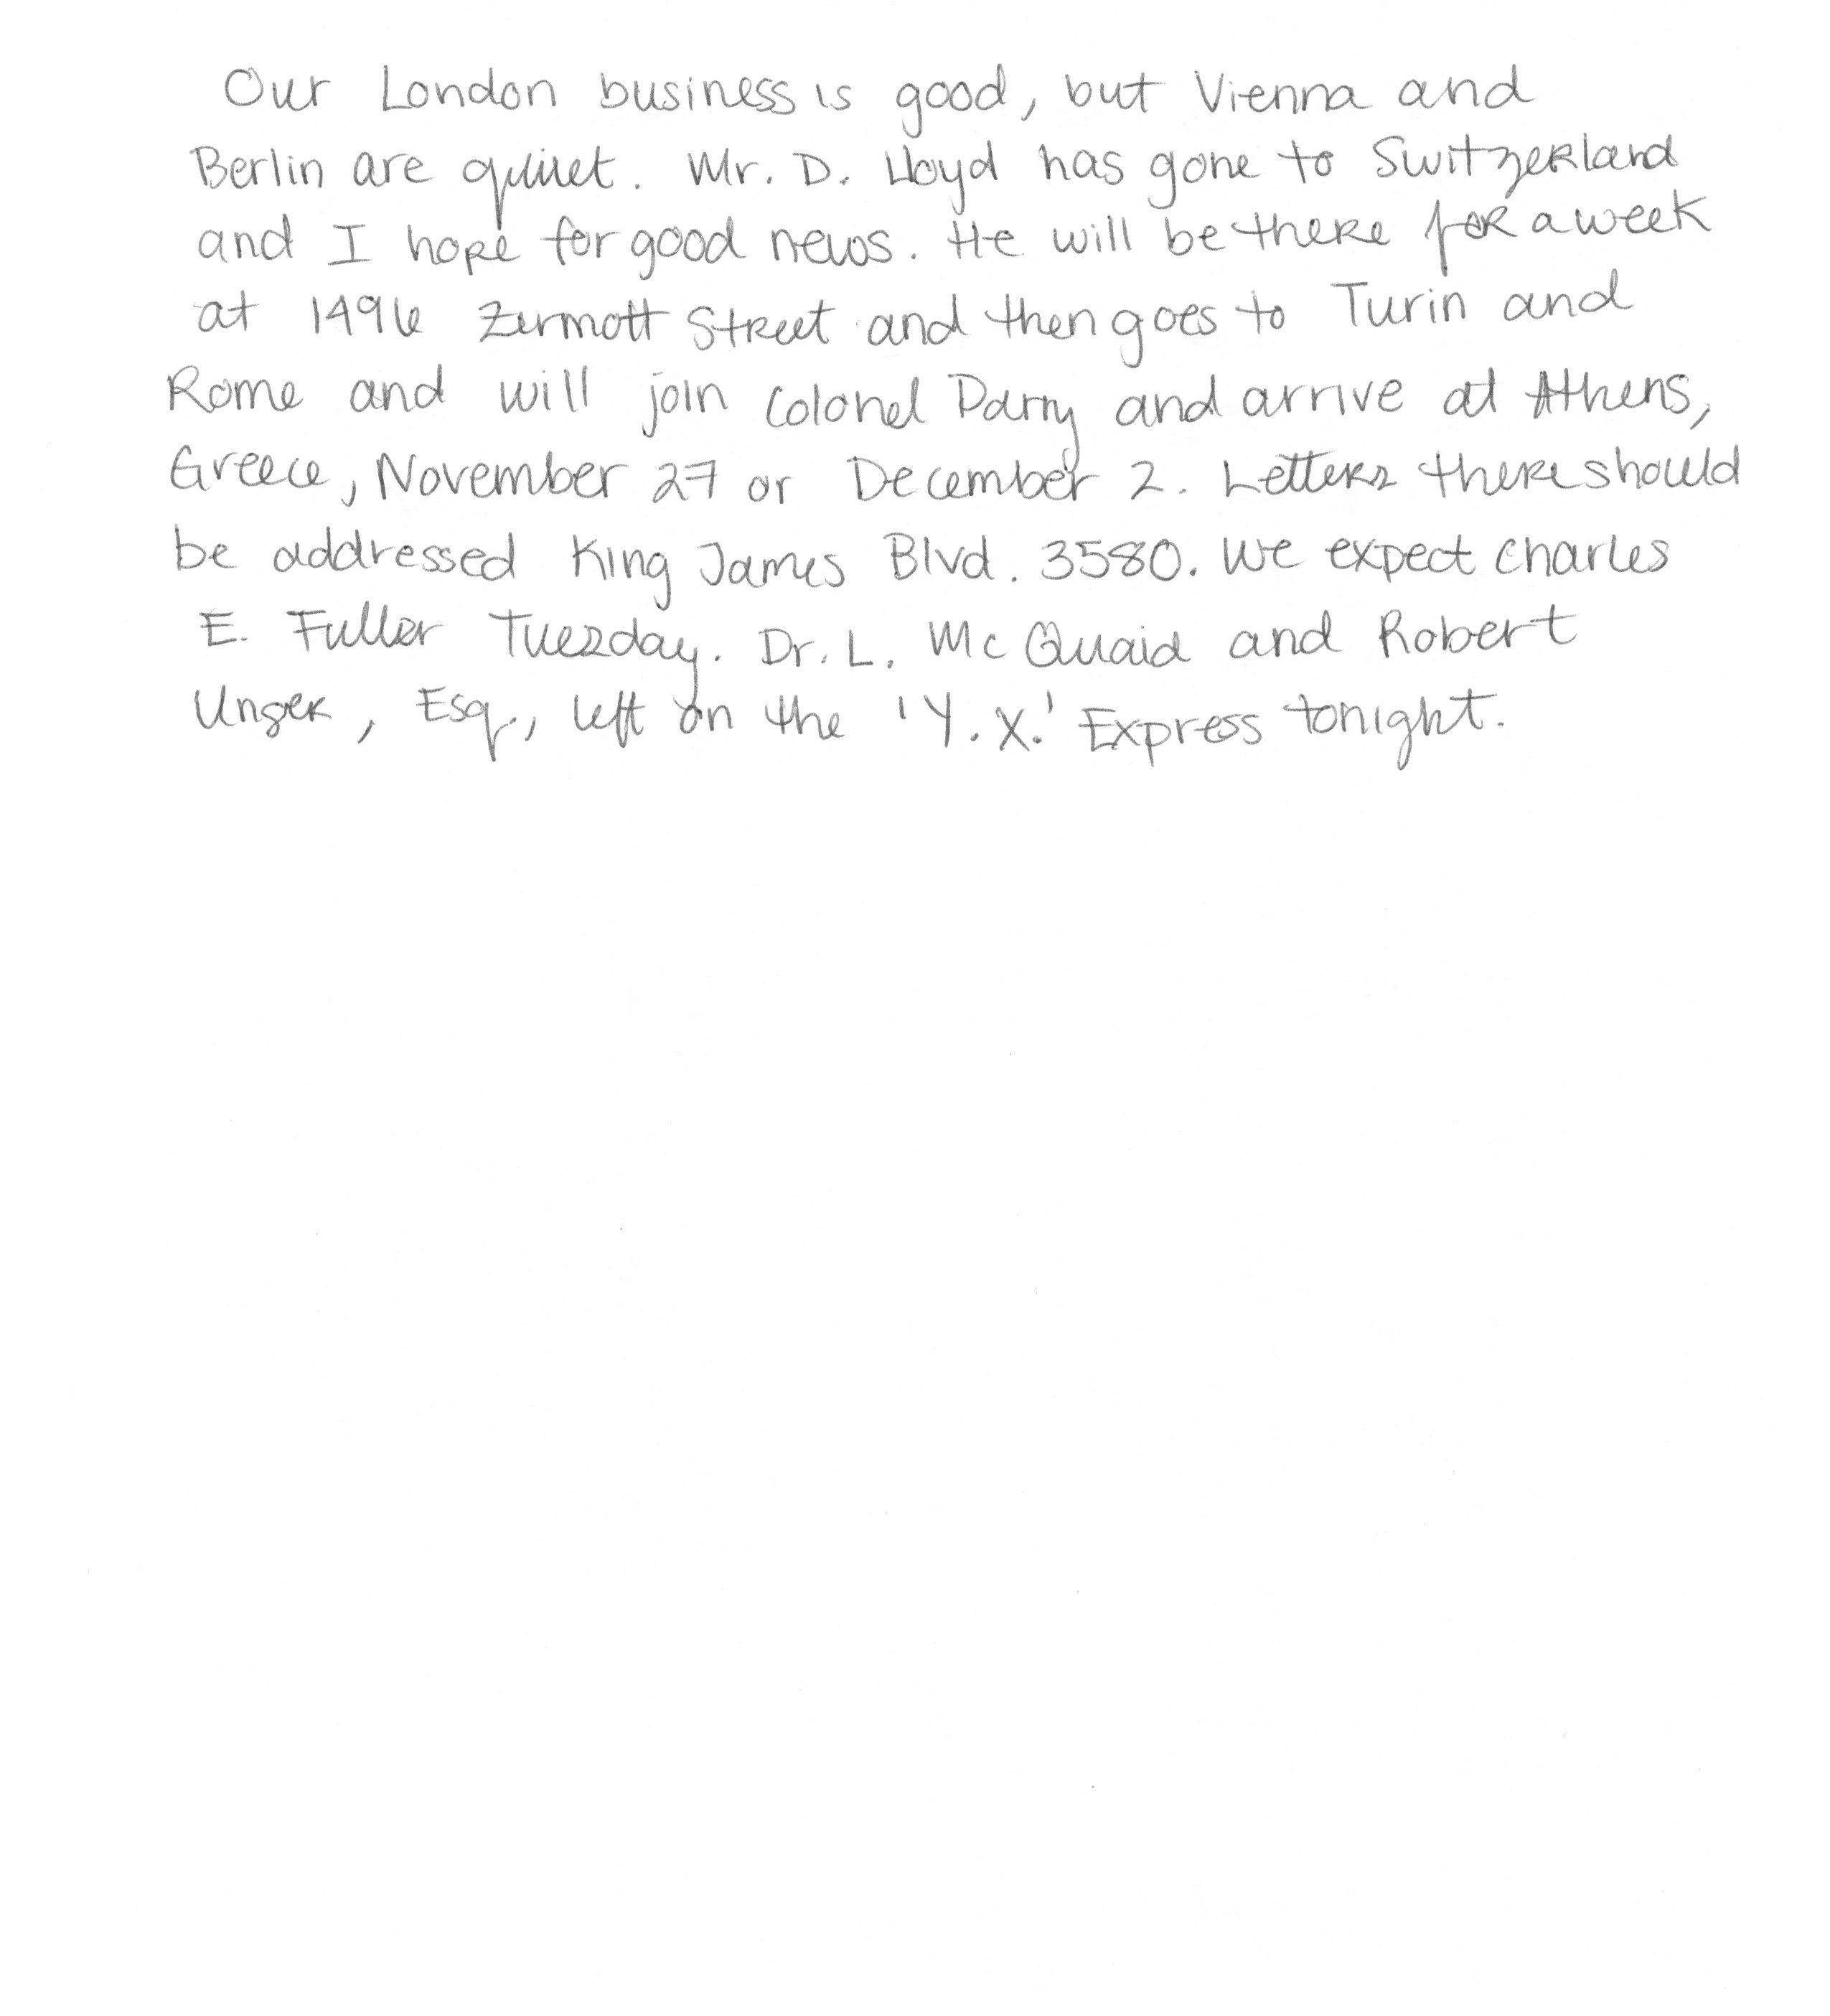 Our London business is good, but Vienna and
Berlin are quiet. Mr. D. Lloyd has gone to Switzerland
and I hope for good news. He will be there for a week
at 1496 Zermott Street and then goes to Turin and
Rome and will join Colonel Parry and arrive at Athens,
Greece, November 27 or December 2. Letters there should
be addressed King James Blvd. 3580. We expect Charles
E. Fuller Tuesday. Dr. L. McQuaid and Robert
Unger, Esq., left on the 'Y.X.' Express tonight.